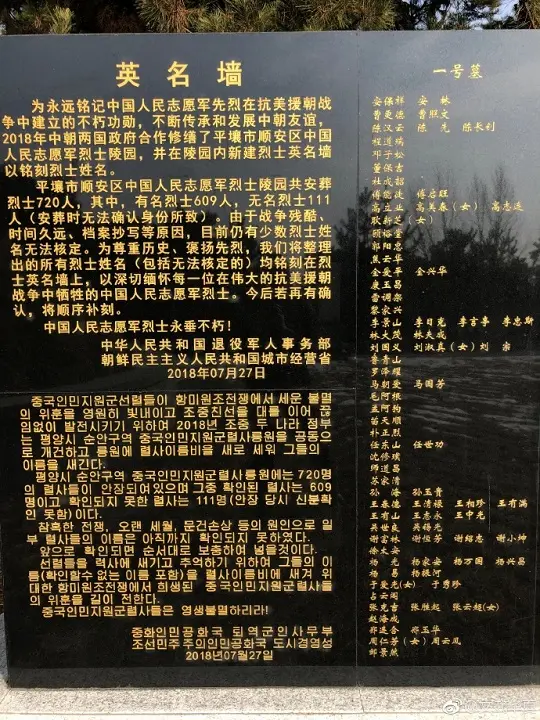 英名墙
为永远铭记中国人民志愿军先烈在抗美援朝战
争中建立的不朽功勋，不断传承和发展中朝友谊，
2018年中朝两国政府合作修缮了平壤市顺安区中国
人民志愿军烈士陵园，并在陵园内新建烈士英名墙
以铭刻烈士姓名。
平壤市顺安区中国人民志愿军烈士陵园共安葬
烈士720人，其中，有名烈士609人，无名烈士111
人（安葬时无法确认身份所致）。由于战争残酷、
时间久远、档案抄写等原因，目前仍有少数烈士姓
名无法核定。为尊重历史、褒扬先烈，我们将整理
出的所有烈士姓名（包括无法核定的）均铭刻在烈
士英名墙上，以深切缅怀每一位在伟大的抗美援朝
战争中牺牲的中国人民志愿军烈士。今后若再有确
认，将顺序补刻。
中国人民志愿军烈士永垂不朽！
中华人民共和国退役军人事务部
朝鲜民主主义人民共和国城市经营省
2018年07月27日
중국인민지원군선렬들이 항미원조전쟁에서 세운 불멸
의 위훈을 영원히 빛내이고 조중친선을 대를 이어 끊
임없이 발전시키기 위하여 2018년 조중 두 나라 정부
는 평양시 순안구역 중국인민지원군렬사릉원을 공동으
로 개건하고 릉원에 렬사이름비를 새로 세워 그들의
이름을 새긴다.
평양시 순안구역 중국인민지원군렬사릉원에는 720명
의 렬사들이 안장되여있으며 그중 확인된 렬사는 609
명이고 확인되지 못한 렬사는 111명(안장 당시 신분확인
못함)이다.
참혹한 전쟁, 오랜 세월, 문건손상 등의 원인으로 일
부 렬사들의 이름은 아직까지 확인되지 못하였다.
앞으로 확인되면 순서대로 보충하여 넣을것이다.
선렬들을 력사에 새기고 추억하기 위하여 그들의 이
름(확인할수 없는 이름 포함)을 렬사이름비에 새겨 위
대한 항미원조전쟁에서 희생된 중국인민지원군렬사들
의 위훈을 길이 전한다.
중국인민지원군렬사들은 영생불멸하리라!
중화인민공화국 퇴역군인사무부
조선민주주의인민공화국 도시경영성
2018년07월27일
一号墓
安保祥 安林
曹更德 曹照文
陈汉云 陈光 陈长利
程道瑞
邓子松
董保吉
杜成韶
傅能徒 傅启旺
高立山 高美春（女） 高志远
耿新芝（女）
顾裕堂
郭阳忠
金爱平 金兴华
康玉昌
雷调荣
黎家兴
李景山 李日克 李言亭 李忠斯
林大茂 林夫成
刘国义 刘淑真（女） 刘宗
鲁青山
罗泽耀
马朝爱 马国芳
毛阿根
孟阿狗
苗天顺
朴正烈
任东山 任世功
沈修璞
师道昌
苏家清
孙海 孙玉贵
王春德 王清禄 王相珍 王有满
王有山 王志永 王中光
吴世良 吴锡光
谢富林 谢恒芳 谢绍忠 谢小坤
徐大安
杨光 杨家安 杨万国 杨兴昌
杨真 杨振河
于爱光（女） 于秀珍
占云阁
张克吉 张胜起 张云超（女）
赵海成
郑适合 郑玉华
周仁芳（女） 周云凤
邹景然